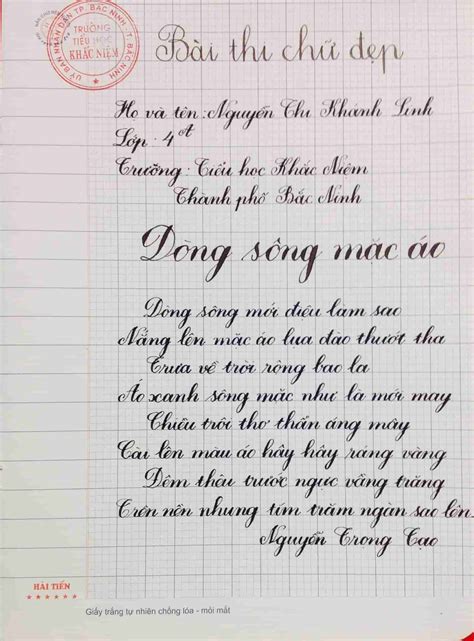 ỦY BAN NHÂN DÂN TP. BẮC NINH - T. BẮC NINH
TRƯỜNG
TIỂU HỌC
KHẮC NIỆM
Bài thi chữ đẹp
Họ và tên : Nguyễn Thi Khánh Linh
Lớp : 4A
Trường : Tiểu học Khắc Niệm
Thành phố Bắc Ninh
Dòng sông mặc áo
Dòng sông mới điệu làm sao
Nắng lên mặc áo lụa đào thướt tha
Trưa về trời rộng bao la
Áo xanh sông mặc như là mới may
Chiều trôi thơ thẩn áng mây
Cài lên màu áo hây hây ráng vàng
Đêm thêu trước ngực vầng trăng
Trên nền nhung tím trăm ngàn sao lên.
Nguyễn Trọng Tạo
HẢI TIẾN
Giấy trắng tự nhiên chống lóa - mỏi mắt